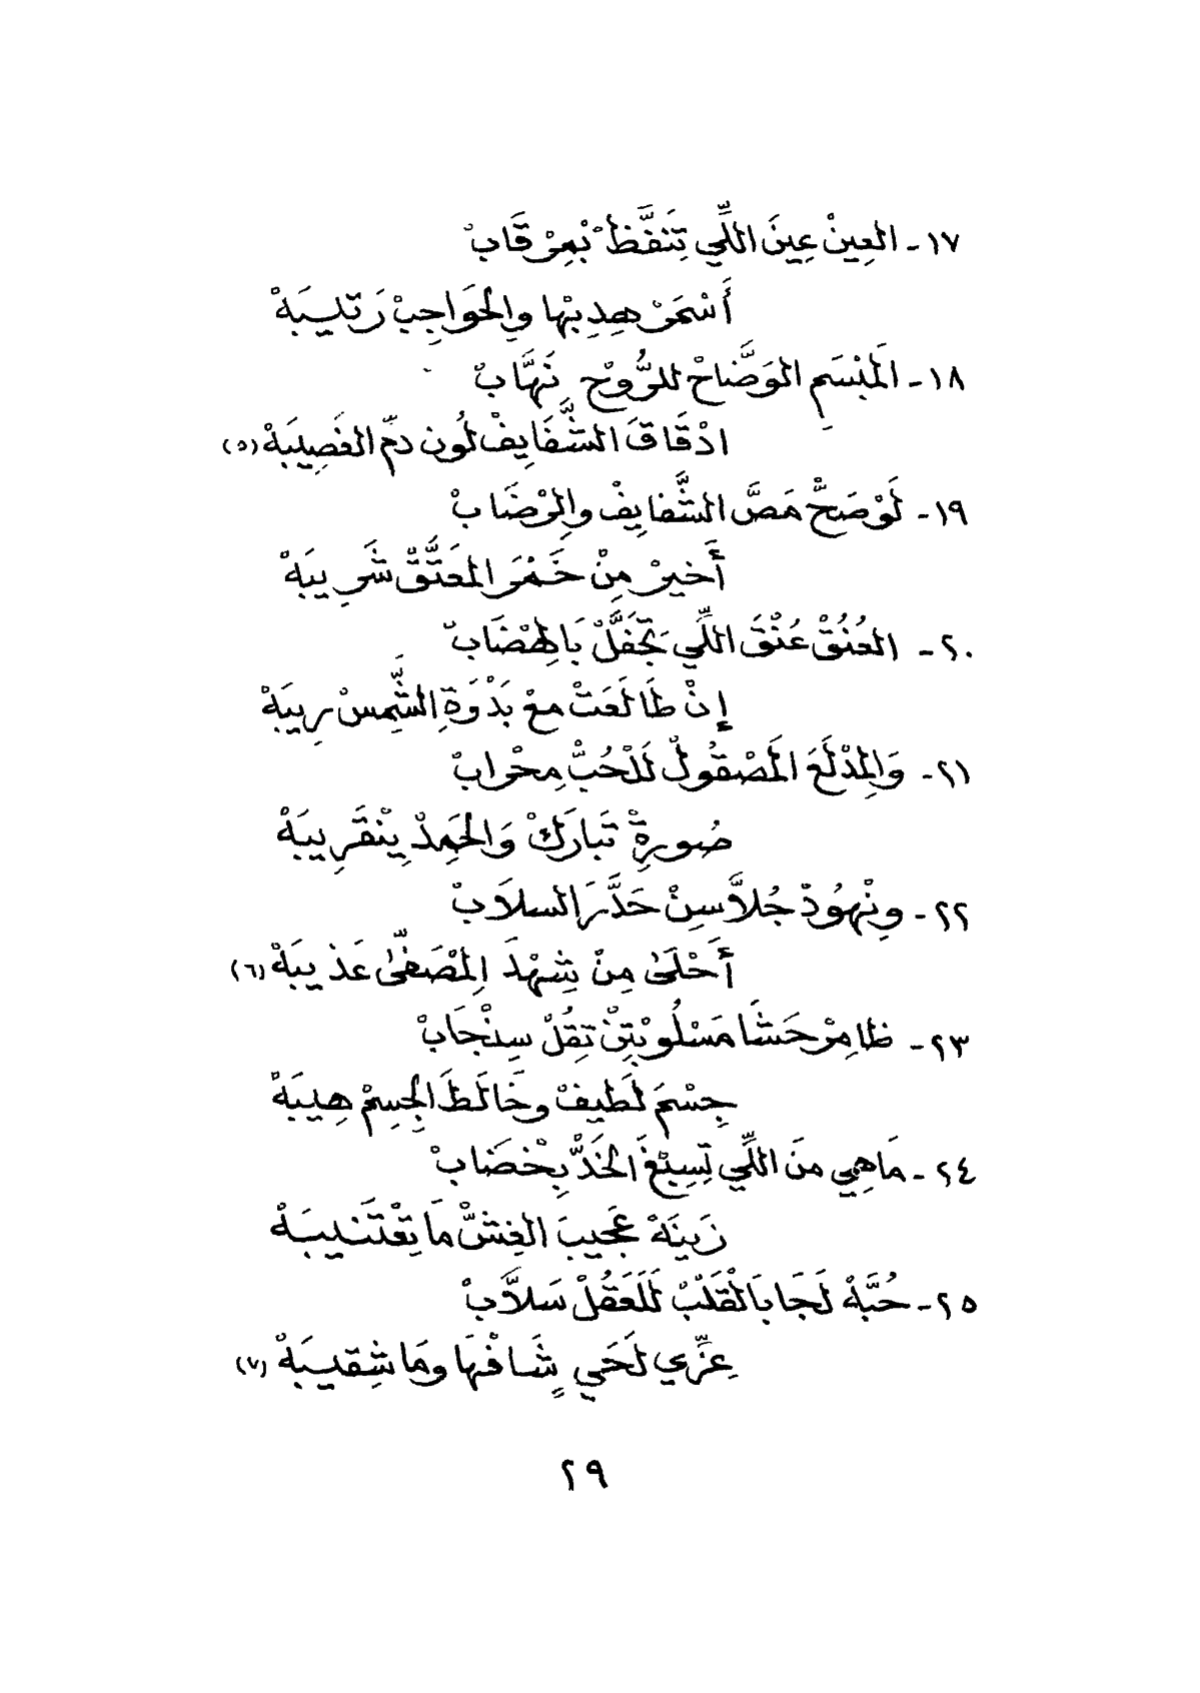 ١٧ - العِينْ عِينَ اللِّي تِنَفَّظْ بْمِرْقَابْ
أَسْمَرْ هِدِبْها والحَواجِبْ رَتيبَهْ
١٨ - المَبْسَمِ الوَضَّاحْ للرُّوْحِ نَهَّابْ
ادْقَاقَ الشَّفَايِفْ لُون دمِّ الغَصِيبَهْ (٥)
١٩ - لَوْ صَحَّ مَصَّ الشَّفايِفْ والِرْضَابْ
أَخيرْ مِنْ خَمْرَ المعَتَّقْ شَرِيبَهْ
٢٠ - العُنُقْ عُنْقَ اللِّي تَجَفَّلْ بَالِهْضَابْ
إِنْ طَالَعَتْ معْ بَدْوَةِ الشَّمِسْ رِيبَهْ
٢١ - وَالِمْدْلَعَ المَصْقُولْ لَلْحُبّْ مِحْرابْ
صُورِةْ تَبارَكْ وَالحَمِدْ يِنْقَرِيبَهْ
٢٢ - ونْهُودْ جُلاَّسِنْ حَدَّرَ السلاَبْ
أَحْلَىٰ مِنْ شِهْدَ المْصَفّىٰ عَذيبَهْ (٦)
٢٣ - ظامِرْ حَشَا مَسْلُوبْتِنْ تِقُلْ سِنْجَابْ
جِسْمَ لَطيفْ وخَالَطَ الجِسِمْ هِيبَهْ
٢٤ - مَاهِي منَ اللِّي تِسِبْغَ الخَدّْ بِخْضَابْ
زَينَهْ عَجيبَ الغِشّْ مَا تِقْتَنيبَهْ
٢٥ - حُبَّهْ لَجَا بَالْقَلْبْ لَلَعَقُلْ سَلاَّبْ
عِزِّي لَحَيٍ شَافْهَا ومَا شِقيبَهْ (٧)
٢٩